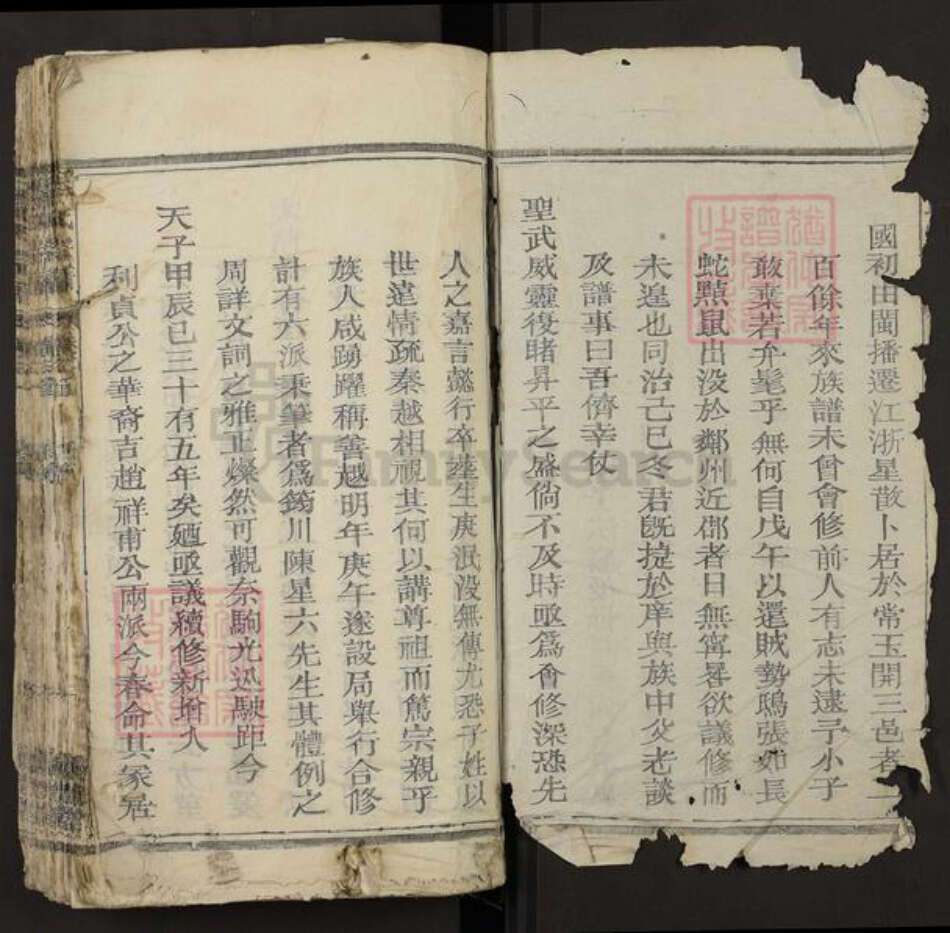 國初由閩播遷江浙星散卜居於常玉開三邑者二
百餘年來族譜未曾會修前人有志未逮予小子
敢棄若弁髦乎無何自戊午以還賊勢鴟張如長
蛇黠鼠出没於鄰州近郡者日無寧晷欲議修而
未遑也同治己巳冬君旣捷於庠與族中父老談
及譜事曰吾儕幸仗
聖武威靈復睹昇平之盛倘不及時亟爲會修深恐先
人之嘉言懿行卒葬生庚泯没無傳尤恐子姓以
世遠情疏秦越相視其何以講尊祖而篤宗親乎
族人咸踴躍稱善越明年庚午遂設局舉行合修
計有六派秉筆者爲筠川陳星六先生其體例之
周詳文詞之雅正燦然可觀奈駒光迅駛距今
天子甲辰已三十有五年矣廼亟議續修新增入
利貞公之華裔吉趙祥甫公兩派今春命其冢居
FamilySearch